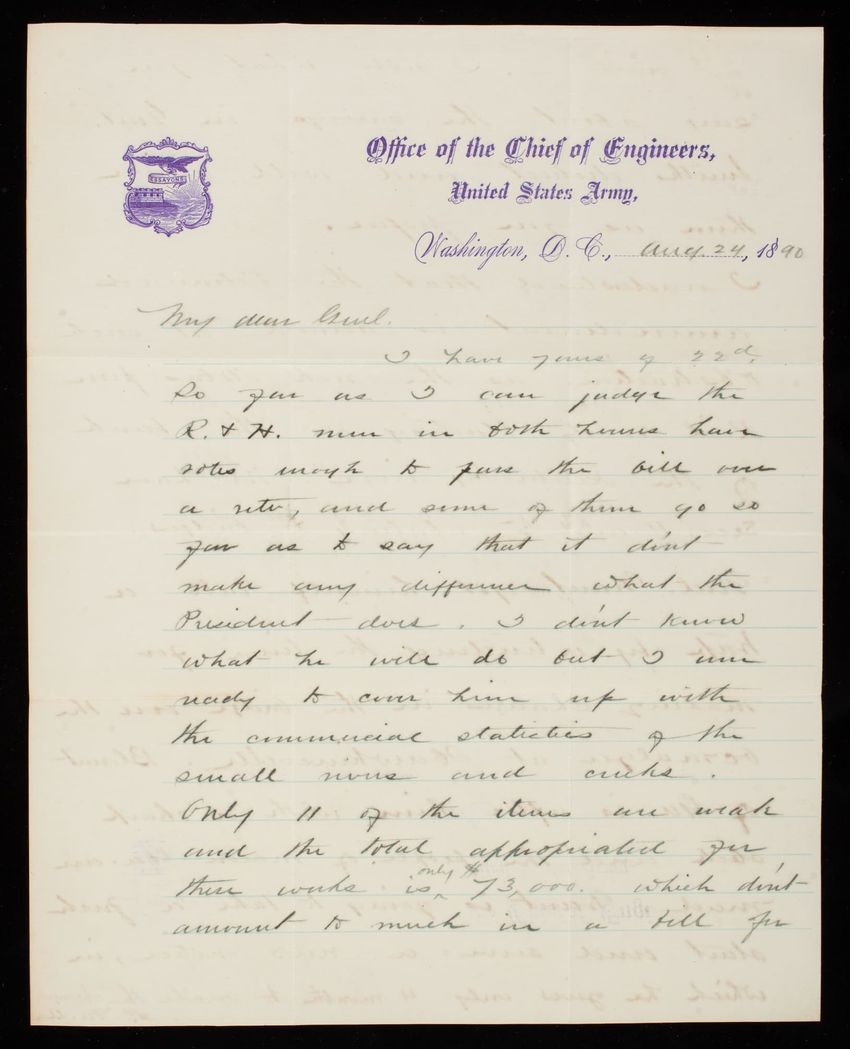 ESSAYONS
Office of the Chief of Engineers,
United States Army,
Washington, D. C., Aug. 24, 1890
My dear Genl.
I have yours of 22d.
So far as I can judge the
R. & H. men in both houses have
votes enough to pass the bill over
a veto, and some of them go so
far as to say that it don't
make any difference what the
President does. I don't know
what he will do but I am
ready to cover him up with
the commercial statistics of the
small rivers and creeks.
Only 11 of the items are weak
and the total appropriated for
these works is only $73,000. which don't
amount to much in a bill for